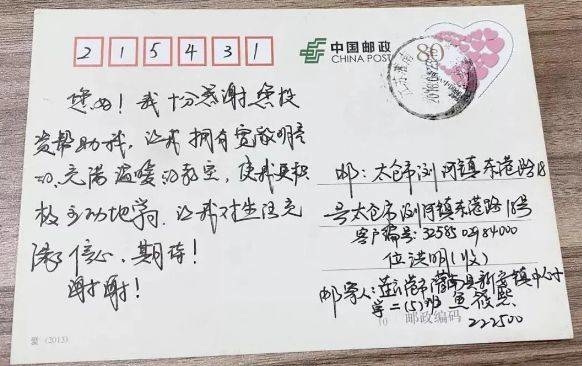 215431
中国邮政
CHINA POST
80
您好！我十分感谢您投
资帮助我，让我拥有宽敞明亮
充满温暖的教室，使我更积
极主动地学习．让我对生活充
满了信心，期待！
谢谢！
邮：太仓市浏河镇东港路18
号太仓市浏河镇东港路18号
客户编号：3258502984000
位洪明(收)
邮寄人：连云港市灌南县新安镇中心小
学二(5)班
邮政编码
222500
爱 (2013)